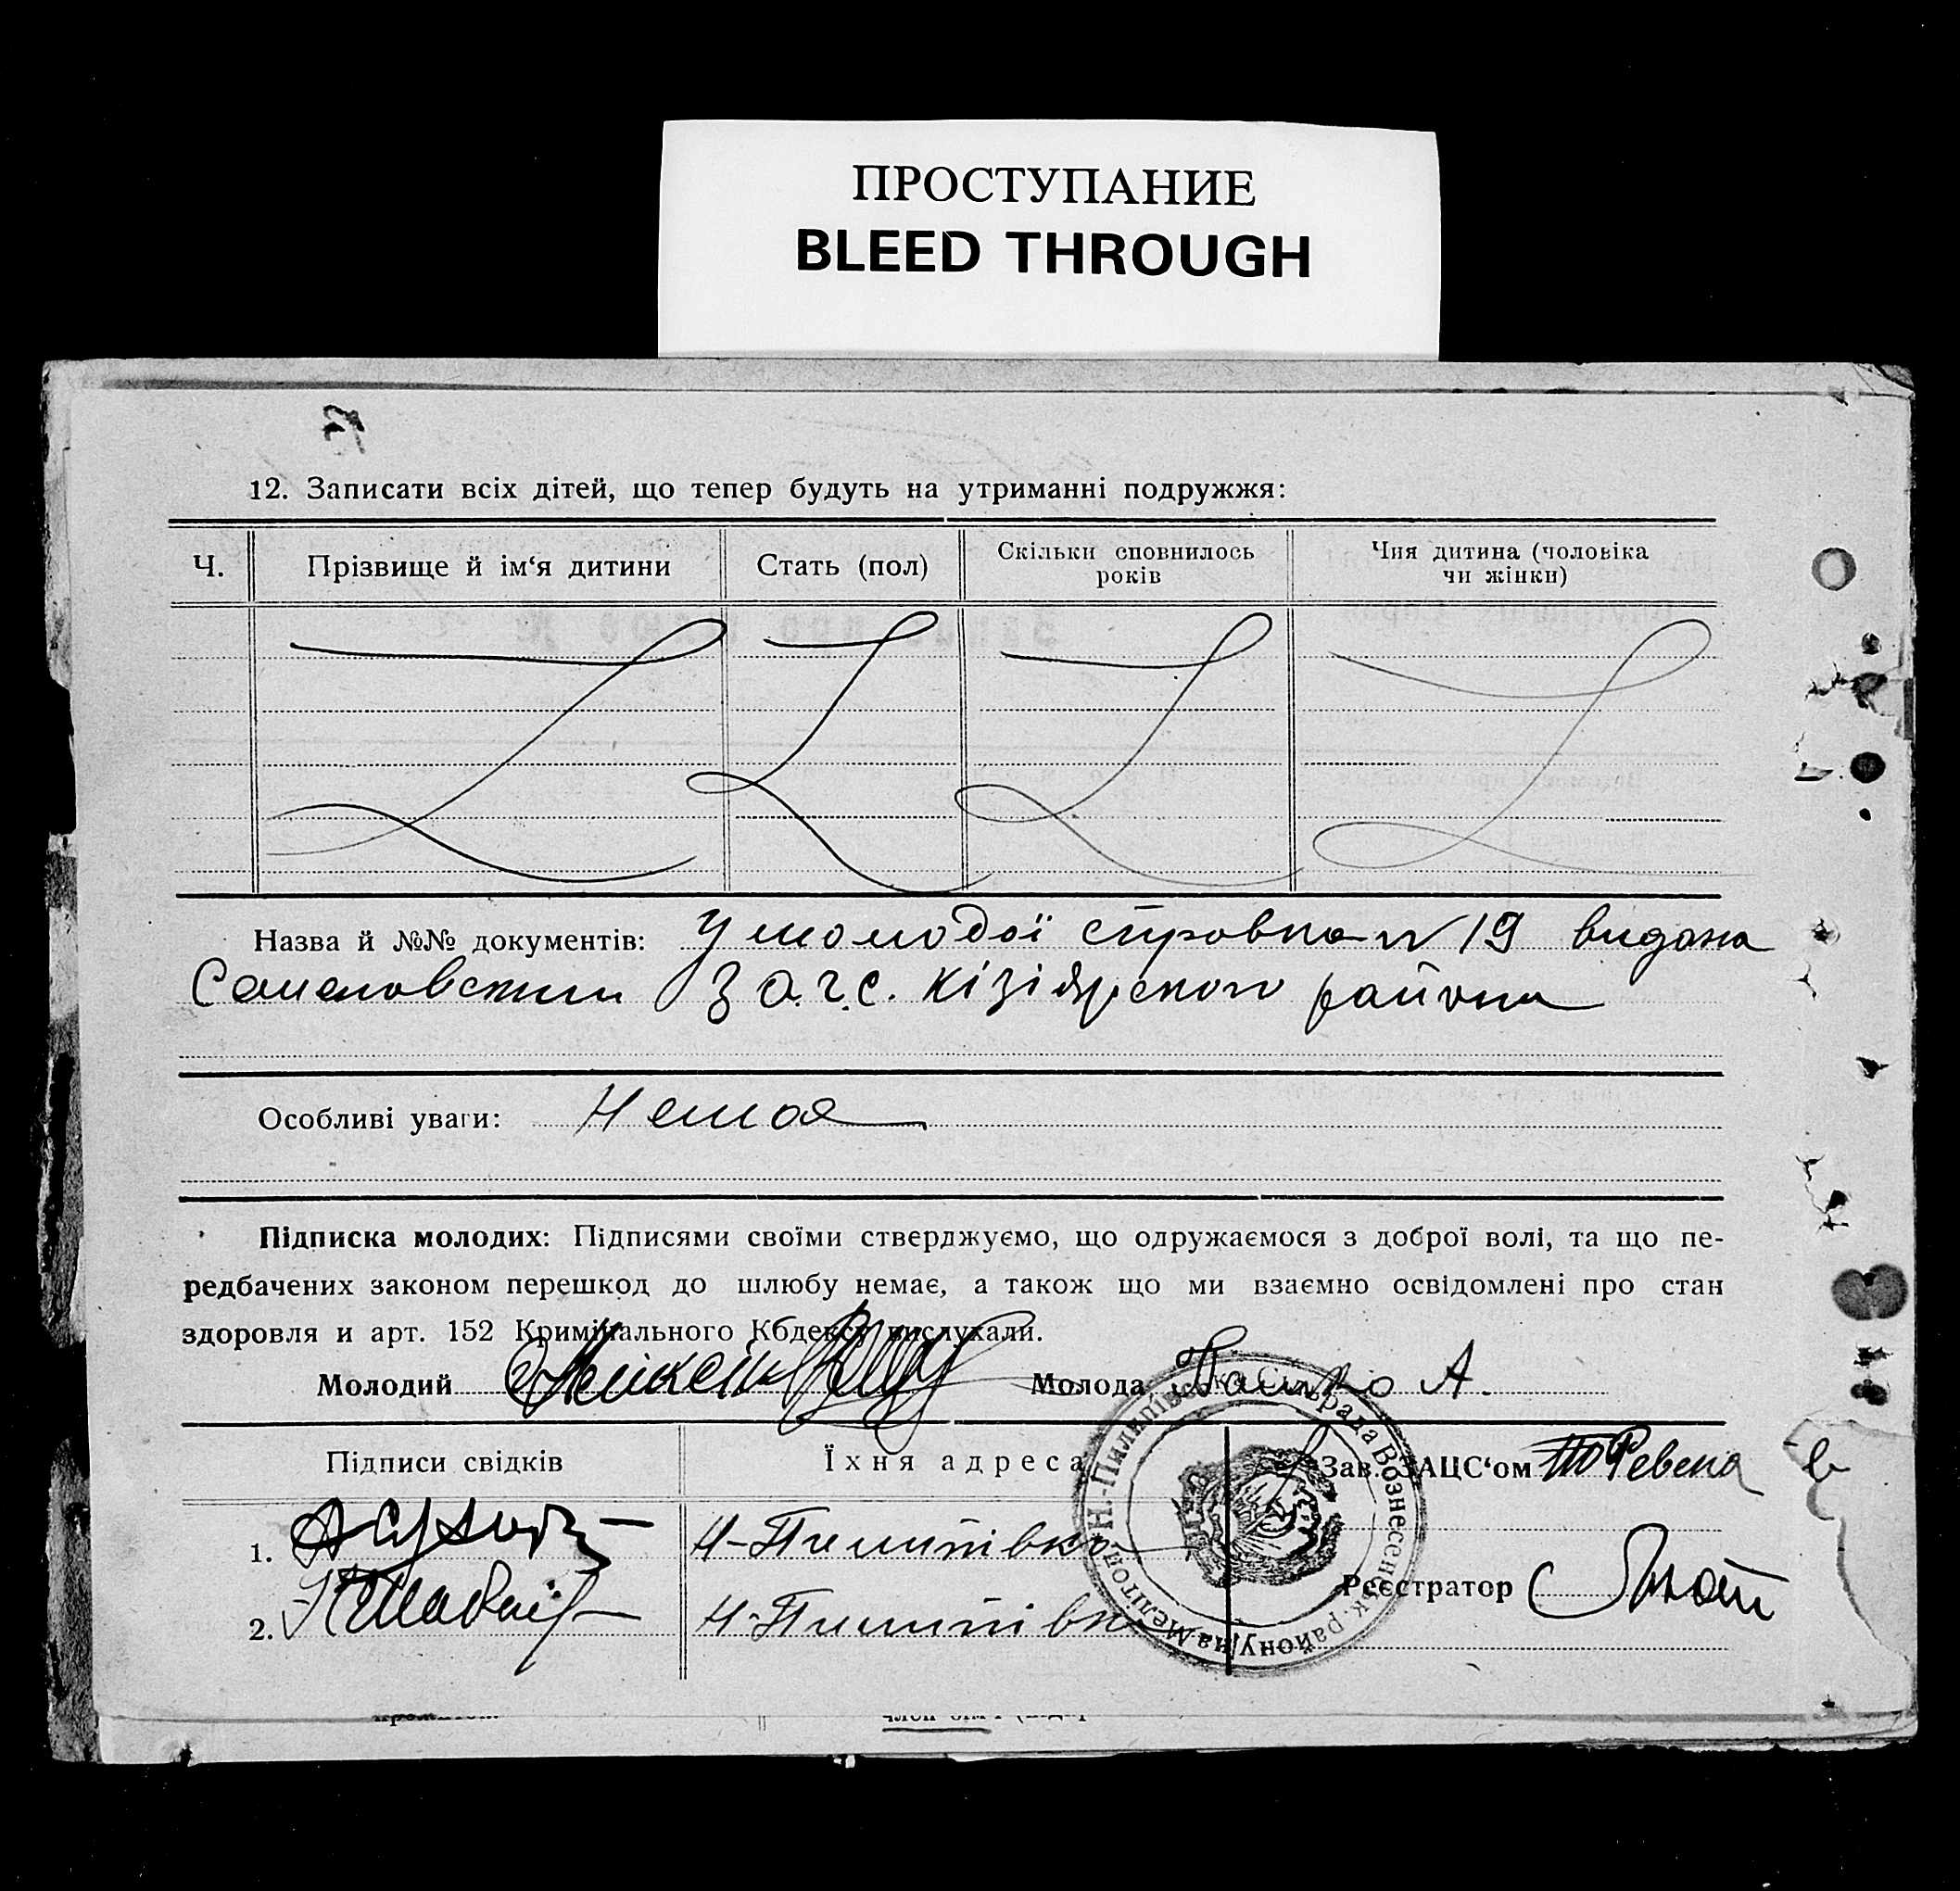 ПРОСТУПАНИЕ
BLEED THROUGH
12. Записати всіх дітей, що тепер будуть на утриманні подружжя:
Ч.
Прізвище й ім‘я дитини
Стать (пол)
Скільки сповнилось
років
Чия дитина (чоловіка
чи жінки)
Назва й №№ документів: У молодої справка N 19 видана
Семеновским З.А.Г.С. Кізіярского района
Особливі уваги: Немає
Підписка молодих: Підписями своїми стверджуємо, що одружаємося з доброї волі, та що пе-
редбачених законом перешкод до шлюбу немає, а також що ми взаємно освідомлені про стан
здоровля и арт. 152 Кримінального Кодексу вислухали.
Молодий
Молода А.
Підписи свідків
Їхня адреса
Зав. ЗАЦС‘ом
1. Н-Пилипівка
Реєстратор
2. Н-Пилипівка
Н.-Пилипівська Сільрада Вознесенськ. району на Мелітоп